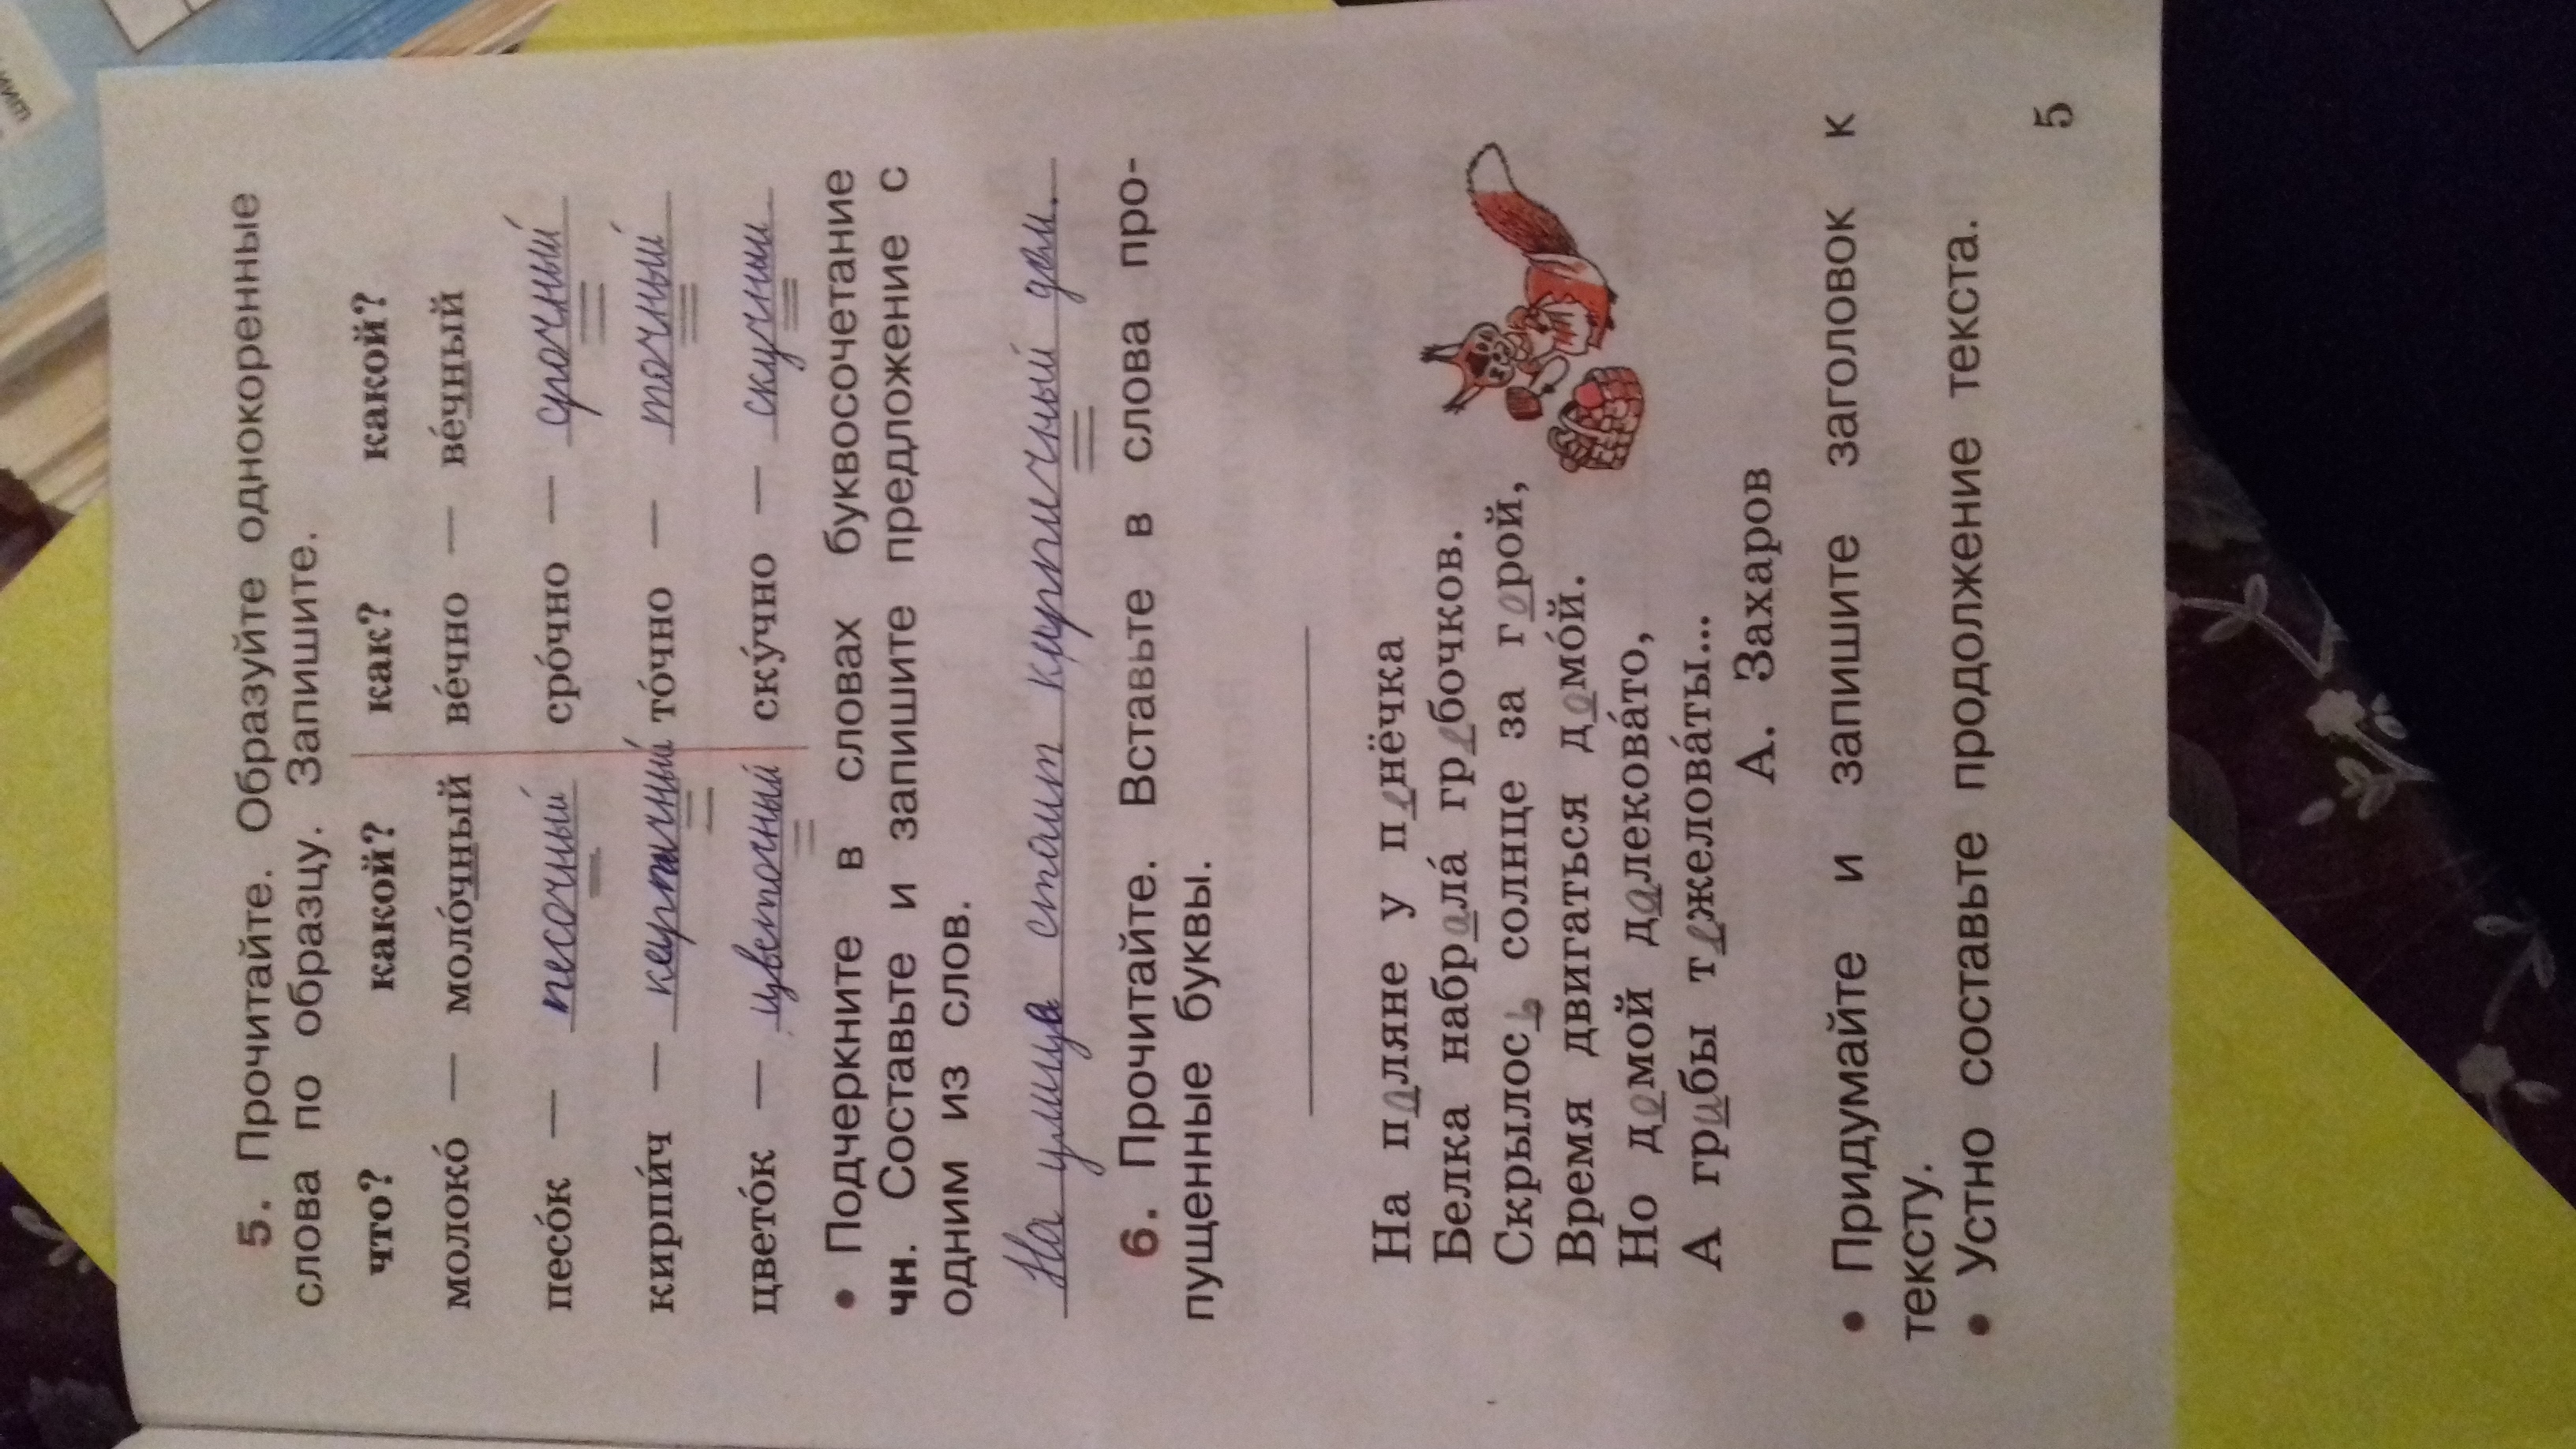 5. Прочитайте. Образуйте однокоренные
слова по образцу. Запишите.
что? какой? как? какой?
молоко́ — моло́чный ве́чно — ве́чный
песо́к — песочный сро́чно — срочный
кирпи́ч — кирпичный то́чно — точный
цвето́к — цветочный ску́чно — скучный
• Подчеркните в словах буквосочетание
чн. Составьте и запишите предложение с
одним из слов.
На улице стоит кирпичный дом.
6. Прочитайте. Вставьте в слова про-
пущенные буквы.
На поляне у пенёчка
Белка набрала́ грибочков.
Скрылось солнце за горой,
Время двигаться домо́й.
Но домой далекова́то,
А грибы тежелова́ты...
А. Захаров
• Придумайте и запишите заголовок к
тексту.
• Устно составьте продолжение текста.
5